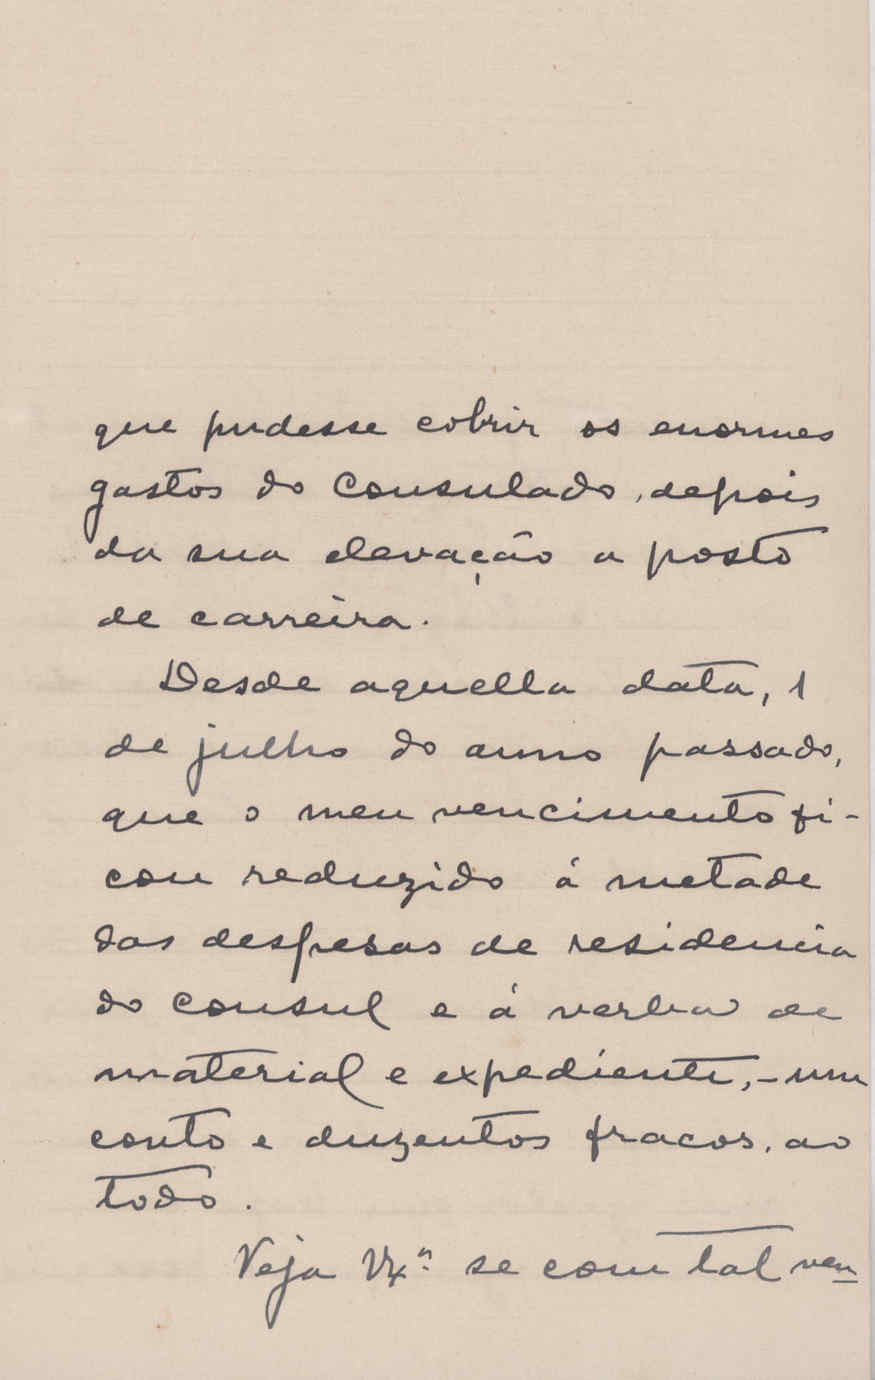 que pudesse cobrir os enormes
gastos do Consulado, depois
da sua elevação a posto
de carreira.
Desde aquella data, 1
de julho do anno passado,
que o meu vencimento fi-
cou reduzido á metade
das despesas de residencia
do consul e á verba de
material e expediente, - um
conto e duzentos fracos, ao
todo.
Veja Vxª. se com tal ven